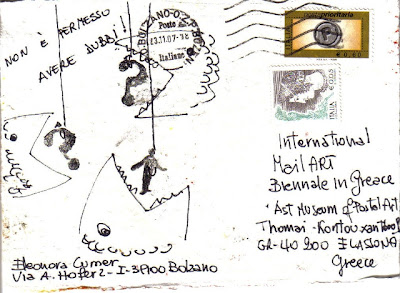 NON È PERMESSO
AVERE DUBBI!
BOLZANO
Poste
13.11.07-18
Italiane
postaprioritaria
ITALIA
€ 0.60
ITALIA
International
Mail ART
Biennale in Greece
Ast Museum of Postal Art
Thomai - Kontou
GR-40 200 ELASSONA
Greece
Eleonora Cumer
Via A. Hofer 2 - I-39100 Bolzano